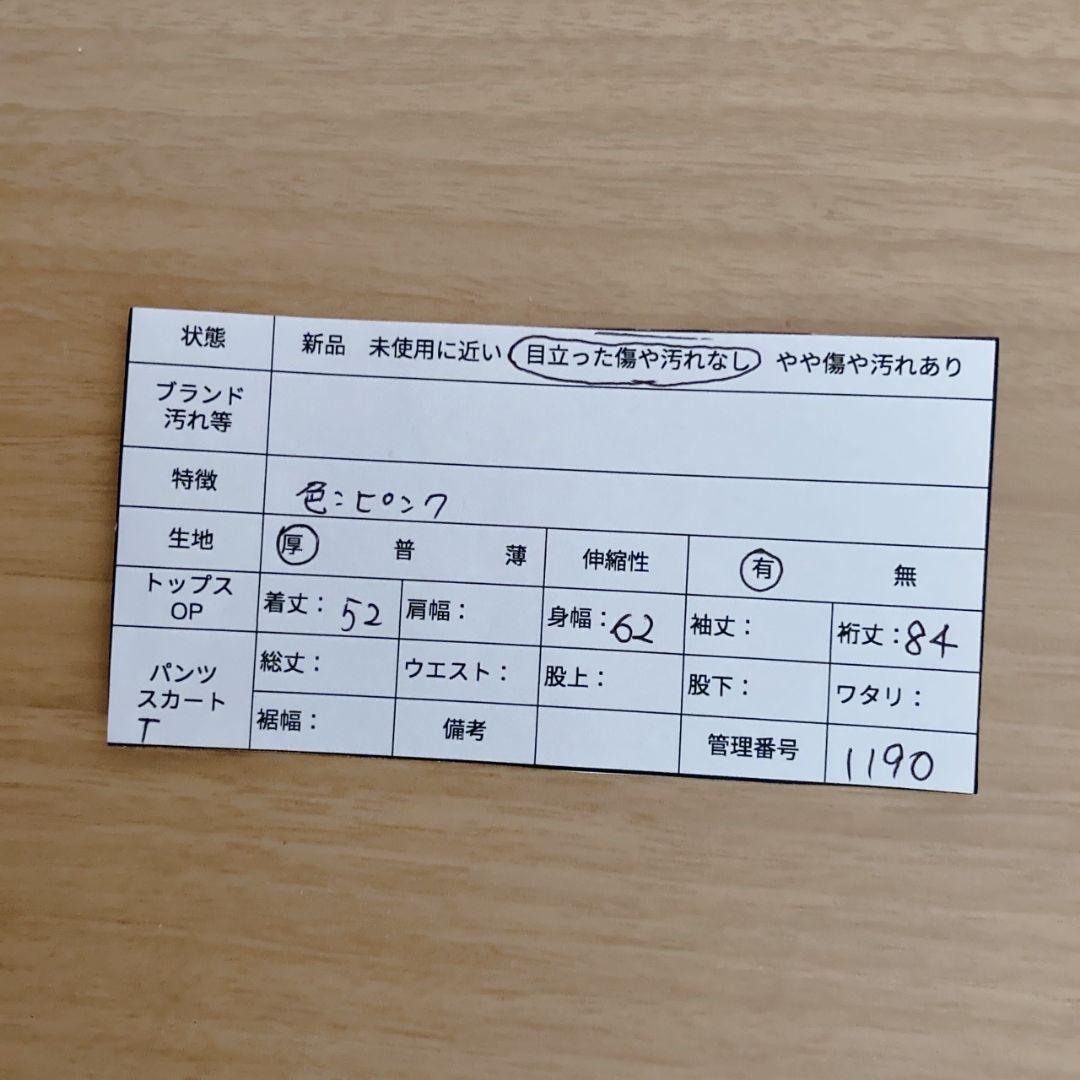 状態 新品 未使用に近い 目立った傷や汚れなし やや傷や汚れあり
ブランド
汚れ等
特徴 色:ピンク
生地 厚 普 薄 伸縮性 有 無
トップス
OP
着丈: 52 肩幅: 身幅:62 袖丈: 裄丈:84
パンツ
スカート
総丈: ウエスト: 股上: 股下: ワタリ:
T
裾幅: 備考 管理番号 1190